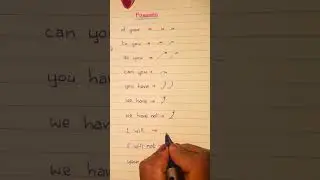 Phrases
of your →
to you →
do you →
can you →
you have →
we have →
we have not →
I will →
I will not
can you
you have
we have